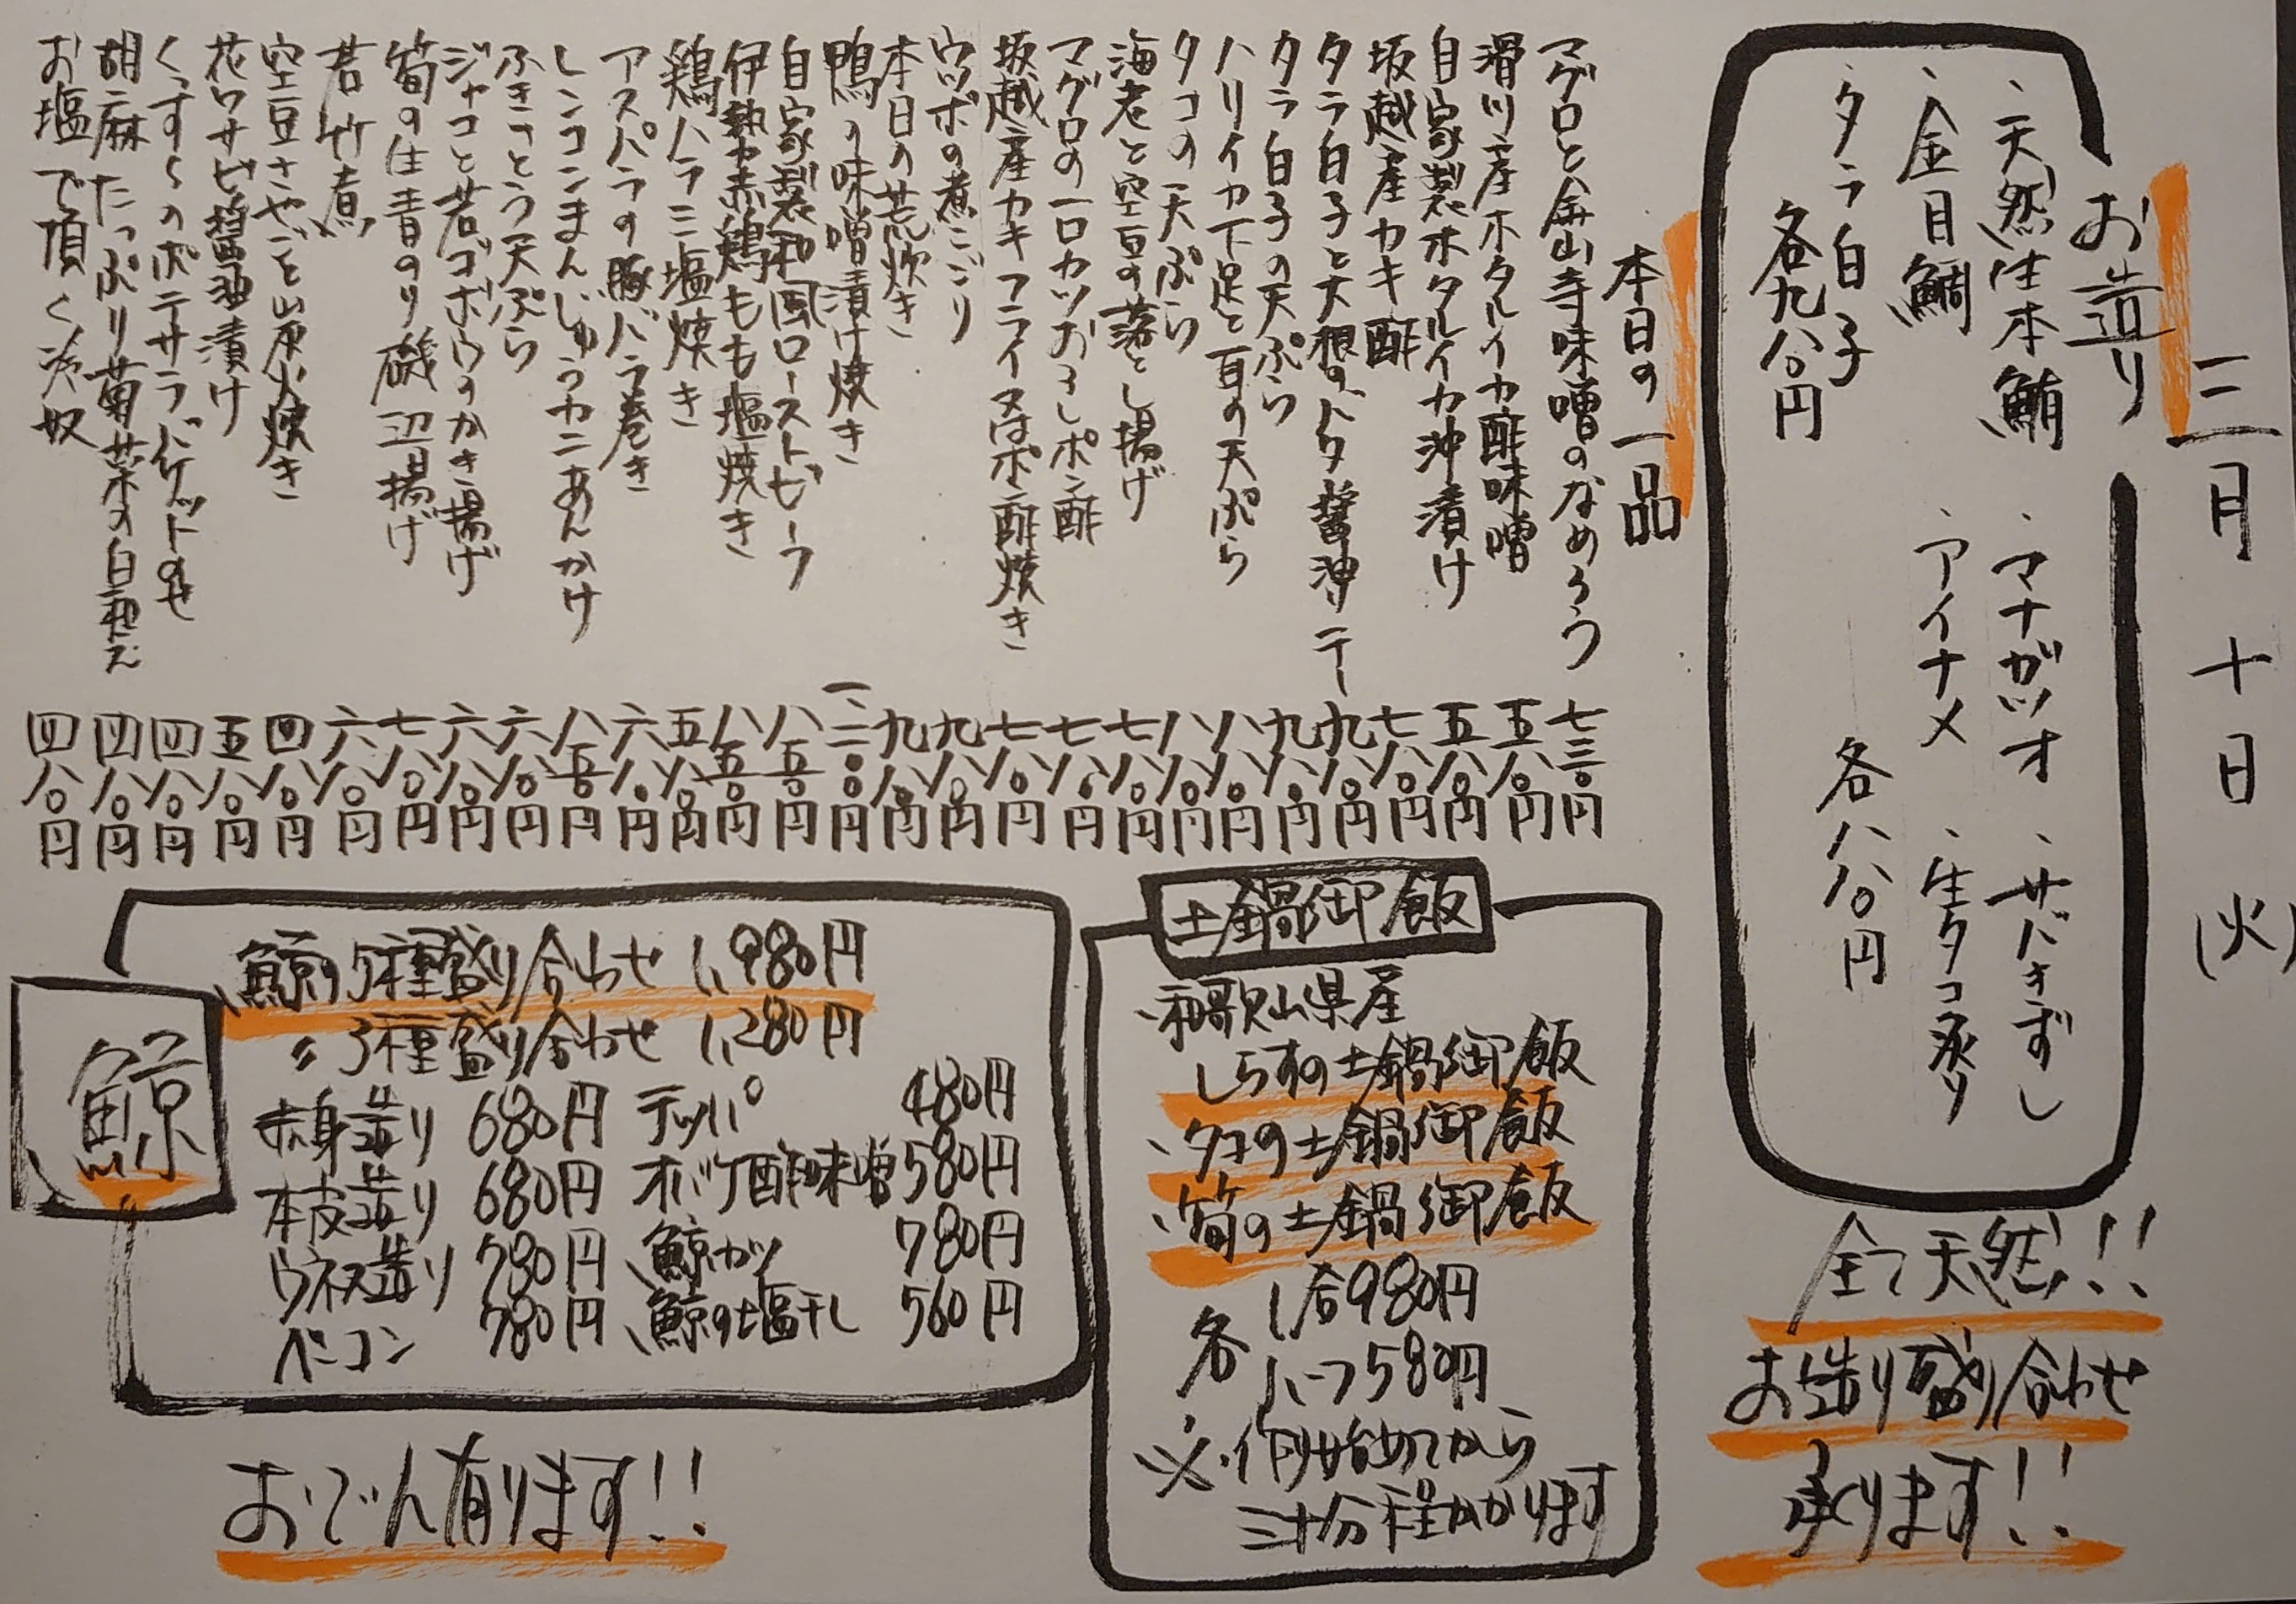 三月十日(火)
お造り
、天然生本鮪
、マナガツオ
、サバきずし
、金目鯛
、アイナメ
、生タコ炙り
、タラ白子
各九八〇円
各八八〇円
全て天然!!
お造り盛り合わせ
承ります!!
本日の一品
マグロと金山寺味噌のなめろう 七三〇円
滑川産ホタルイカ酢味噌 五八〇円
自家製ホタルイカ沖漬け 五八〇円
坂越産カキ酢 七八〇円
タラ白子と大根のバター醤油ソテー 九八〇円
タラ白子の天ぷら 九八〇円
ハリイカ下足と耳の天ぷら 八八〇円
タコの天ぷら 八八〇円
海老と空豆の落とし揚げ 七八〇円
マグロの一口カツおろしポン酢 七八〇円
坂越産カキフライ又はポン酢焼き 七八〇円
ウツボの煮こごり 九八〇円
本日の荒炊き 九八〇円
鴨の味噌漬け焼き 一、二〇〇円
自家製和風ローストビーフ 八五〇円
伊勢赤鶏もも塩焼き 八五〇円
鶏ハラミ塩焼き 五八〇円
アスパラの豚バラ巻き 六八〇円
レンコンまんじゅうカニあんかけ 八五〇円
ふきのとう天ぷら 六八〇円
ジャコと若ゴボウのかき揚げ 六八〇円
筍の生青のり磯辺揚げ 七八〇円
若竹煮 六八〇円
空豆さやごと炭火焼き 四八〇円
花ワサビ醤油漬け 五八〇円
くっすくのポテサラバゲットのせ 四八〇円
胡麻たっぷり菊菜の白和え 四八〇円
お塩で頂く冷奴 四八〇円
土鍋御飯
、和歌山県産
しらすの土鍋御飯
、タコの土鍋御飯
、筍の土鍋御飯
各 1合980円
ハーフ580円
※作り始めてから
三十分程かかります
鯨
、鯨の5種盛り合わせ 1,980円
〃3種盛り合わせ 1,280円
赤身造り 680円 テッパ 480円
本皮造り 680円 オバケ酢味噌 580円
ウネス造り 780円 、鯨カツ 780円
ベーコン 780円 、鯨の塩干し 560円
おでん有ります!!